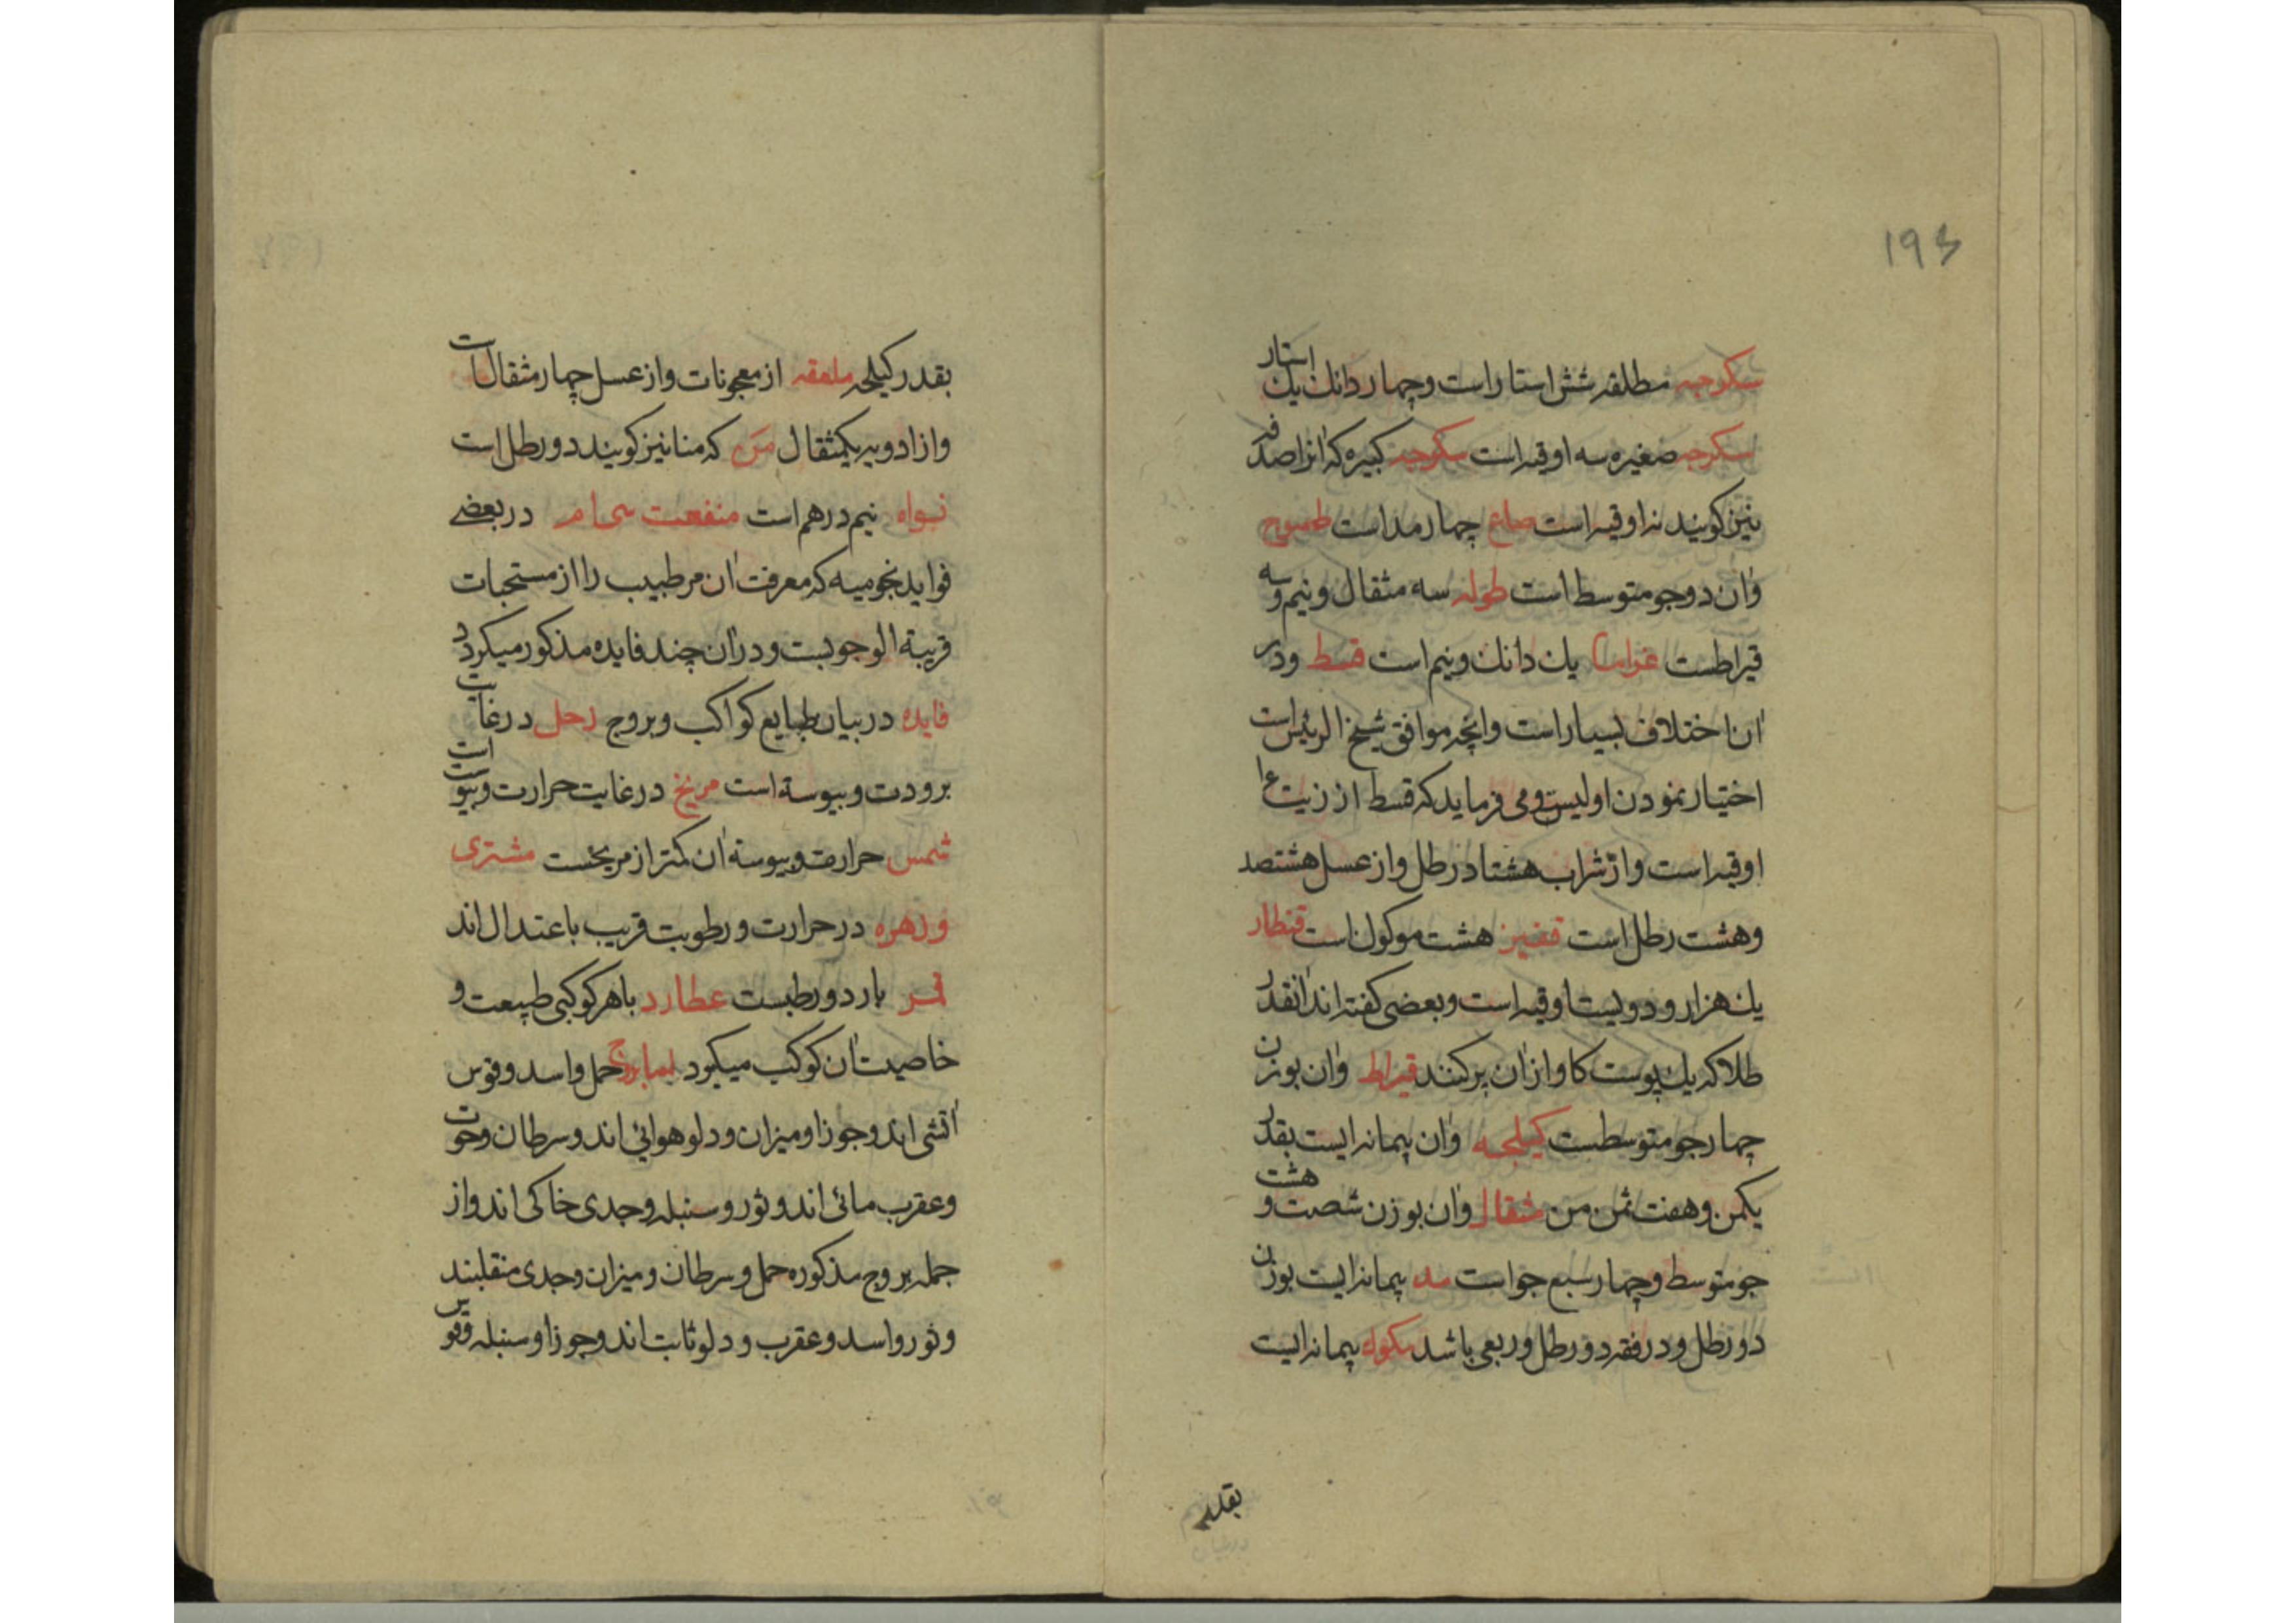 ۱۹۴
سکرجه مطلقه شش استار است و چهار دانك يك استار
سکرجه صغیره سه اوقیه است سکرجه کبیره که انرا صدفه
نیز کویند نه اوقیه است صاع چهار مد است طسوج
وآن دو جو متوسط است طوله سه مثقال و نیم و سه
قیراطست غراما یك دانك و نیم است قسط و در
آن اختلاف بسیار است و انچه موافق شیخ الرئیس است
اختیار نمودن اولیست و می فرماید که قسط از زیت
اوقیه است و از شراب هشتاد رطل و از عسل هشتصد
و هشت رطل است قفیز هشت موکول است قنطار
یك هزار و دویست اوقیه است و بعضی کفته اند آنقدر
طلا که یك پوست کاو از آن پر کنند قیراط وآن بوزن
چهار جو متوسطست کیلجه وآن پیمانه ایست بقدر
یکمن و هفت ثمن من مثقال وآن بوزن شصت و هشت
جو متوسط و چهار سبع جو است مد پیمانه ایست بوزن
دو رطل و در فقه دو رطل و ربعی باشد مکوك پیمانه ایست
بقدر
بقدر کیلجه ملعقه از معجونات و از عسل چهار مثقال است
و از ادویه یکمثقال مَن که منا نیز کویند دو رطل است
نواه نیم درهم است منفعت در بعضے
فواید نجومیه که معرفت آن مر طبیب را از مستحبات
قریبة الوجوبست و در آن چند فایده مذکور میکردد
فایده در بیان طبایع کواکب و بروج زحل در غایت
برودت و یبوسة است مریخ در غایت حرارت و یبوست است
شمس حرارت و یبوسة آن کمتر از مریخست مشتری
و زهره در حرارت و رطوبت قریب باعتدال اند
قمر بارد و رطبست عطارد با هر کوکبی طبیعت و
خاصیت آن کوکب میکیرد اما بروج حمل و اسد و قوس
آتشی اند و جوزا و میزان و دلو هوائی اند و سرطان و حوت
و عقرب مائی اند و ثور و سنبله و جدی خاکی اند و از
جمله بروج مذکوره حمل و سرطان و میزان و جدی منقلبند
و ثور و اسد و عقرب و دلو ثابت اند و جوزا و سنبله و قوس